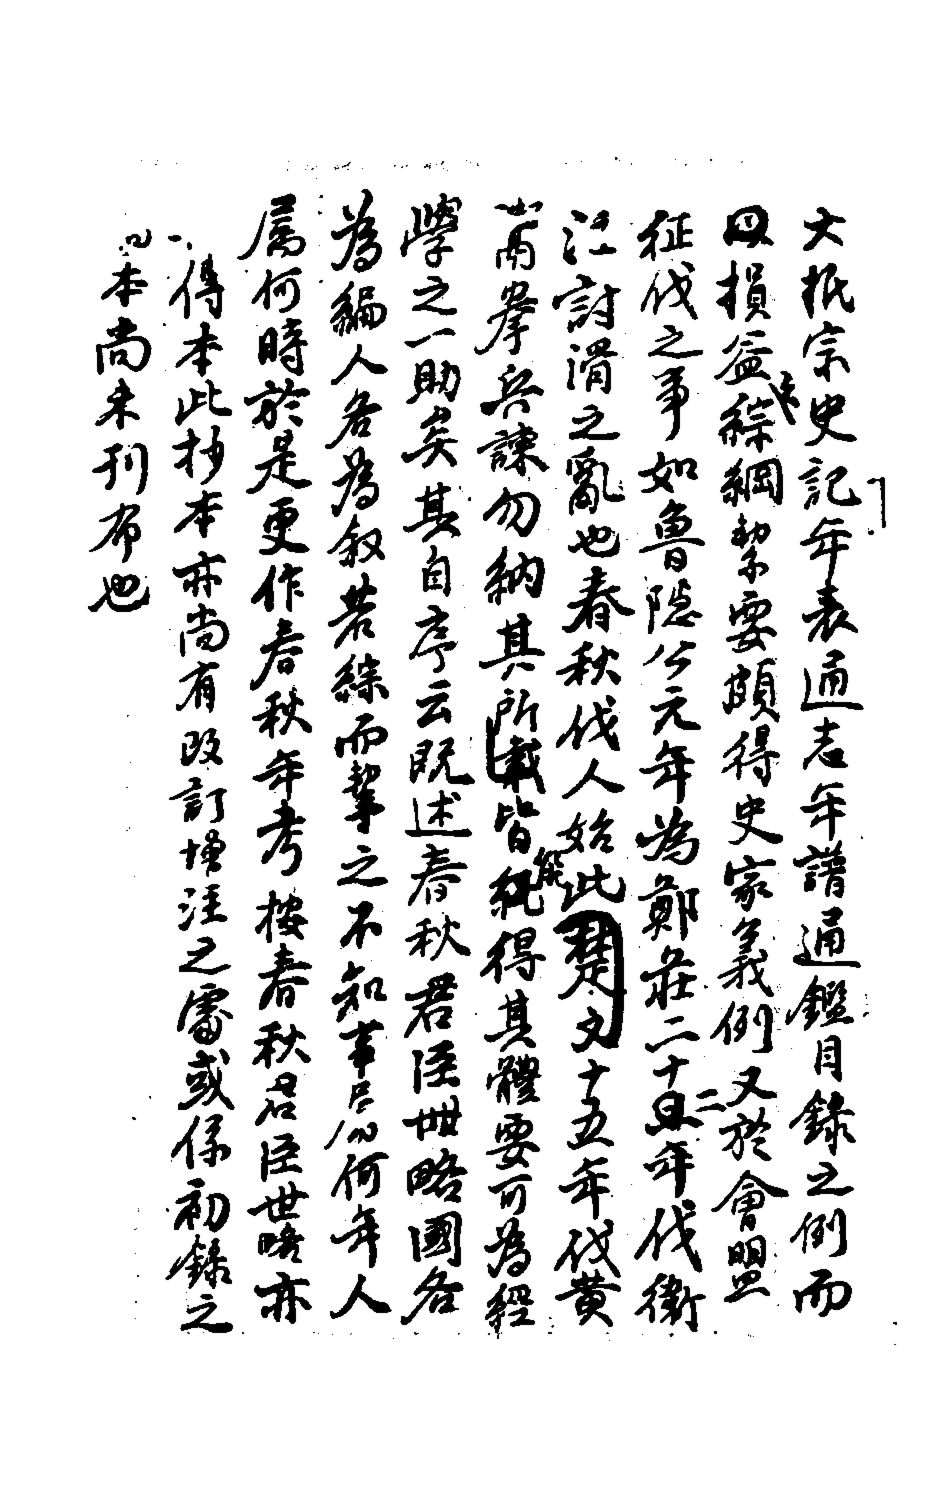 大抵宗史記年表通志年譜通鑑目錄之例而
損益綜綱挈要頗得史家義例又於會盟
征伐之事如魯隱公元年為鄭莊二十二年伐衛
討滑之亂也春秋伐人始此楚文十五年伐黃
鬻拳兵諫勿納其所載皆能得其體要可為經
學之一助矣其自序云既述春秋君臣世略國各
為編人各為敘若綜而挈之不知事屬何年人
屬何時於是更作春秋年考按春秋君臣世略亦
得本此抄本亦尚有改訂增注之處或係初錄之
本尚未刊布也